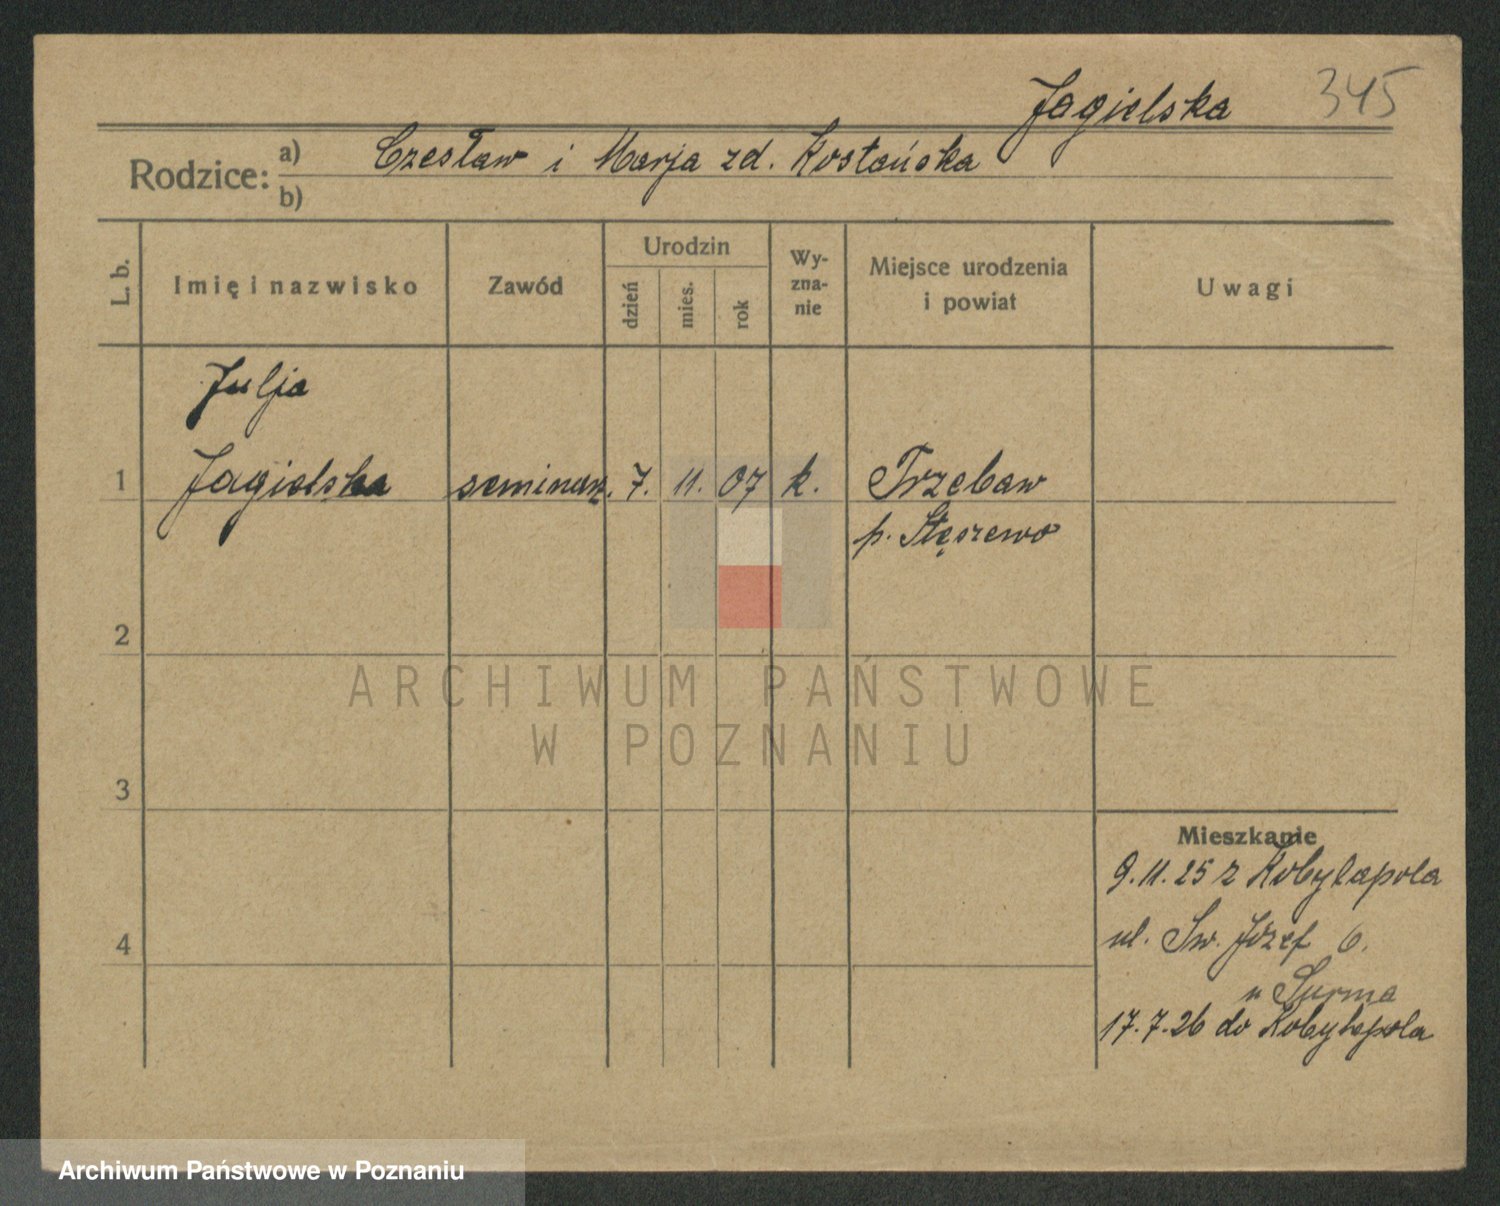 Jagielska 345
Rodzice: a) Czesław i Marja zd. Kostańska
b)
L. b.
Imię i nazwisko
Zawód
Urodzin
dzień
mies.
rok
Wy-
zna-
nie
Miejsce urodzenia
i powiat
Uwagi
Julja
1 Jagielska seminarz. 7. 11. 07 k. Trzebaw
p. Stęszewo
2
ARCHIWUM PAŃSTWOWE
W POZNANIU
3
Mieszkanie
9.11.25 z Kobylapola
ul. Św. Józef 6.
4
u Surma
17.7.26 do Kobylepola
Archiwum Państwowe w Poznaniu